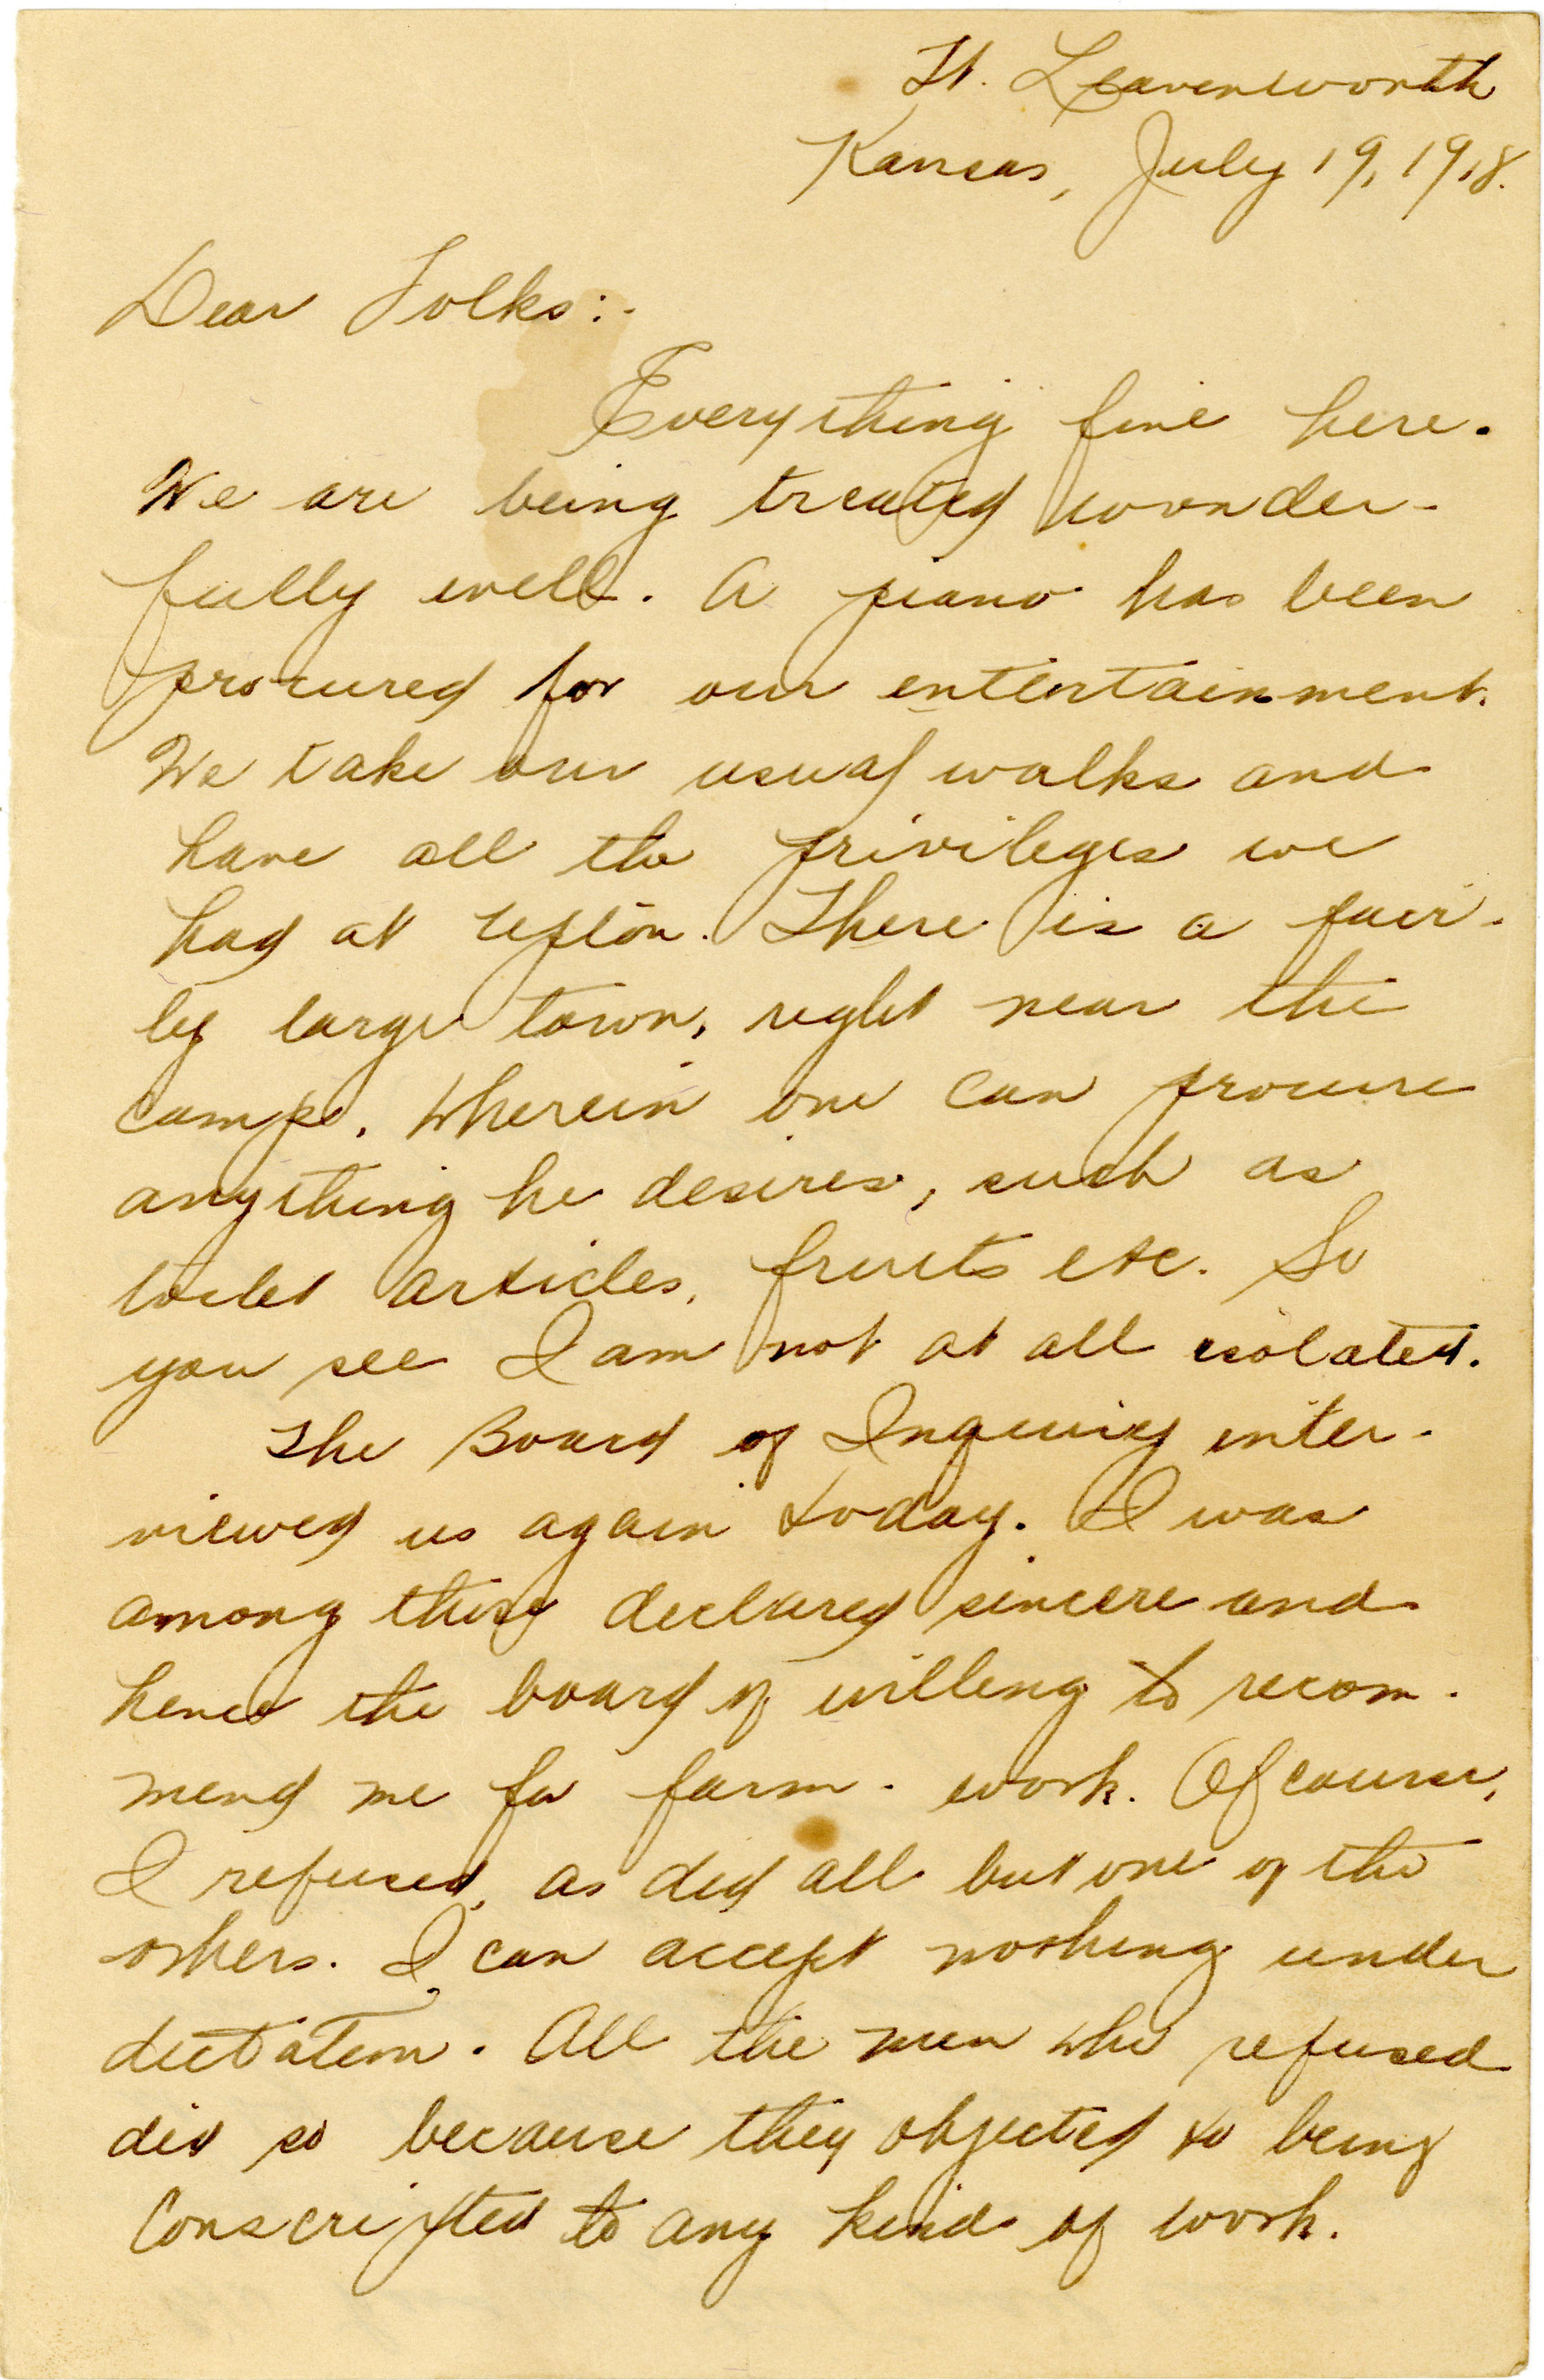 Ft. Leavenworth
Kansas, July 19, 1918.
Dear Folks:-
Everything fine here.
We are being treated wonder-
fully well. A piano has been
procured for our entertainment.
We take our usual walks and
have all the privileges we
had at Upton. There is a fair-
ly large town, right near the
camp, wherein one can procure
anything he desires, such as
toilet articles, fruits etc. So
you see I am not at all isolated.
The Board of Inquiry inter-
viewed us again today. I was
among those declared sincere and
hence the board of willing to recom-
mend me for farm-work. Of course,
I refused, as did all but one of the
others. I can accept nothing under
dictation. All the men who refused
did so because they objected to being
conscripted to any kind of work.